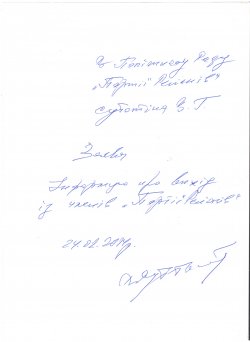 в Політичну Раду
„Партії Регіонів"
Заява
Інформую про вихід
із членів „Партії Регіонів"
24.02.2014р.